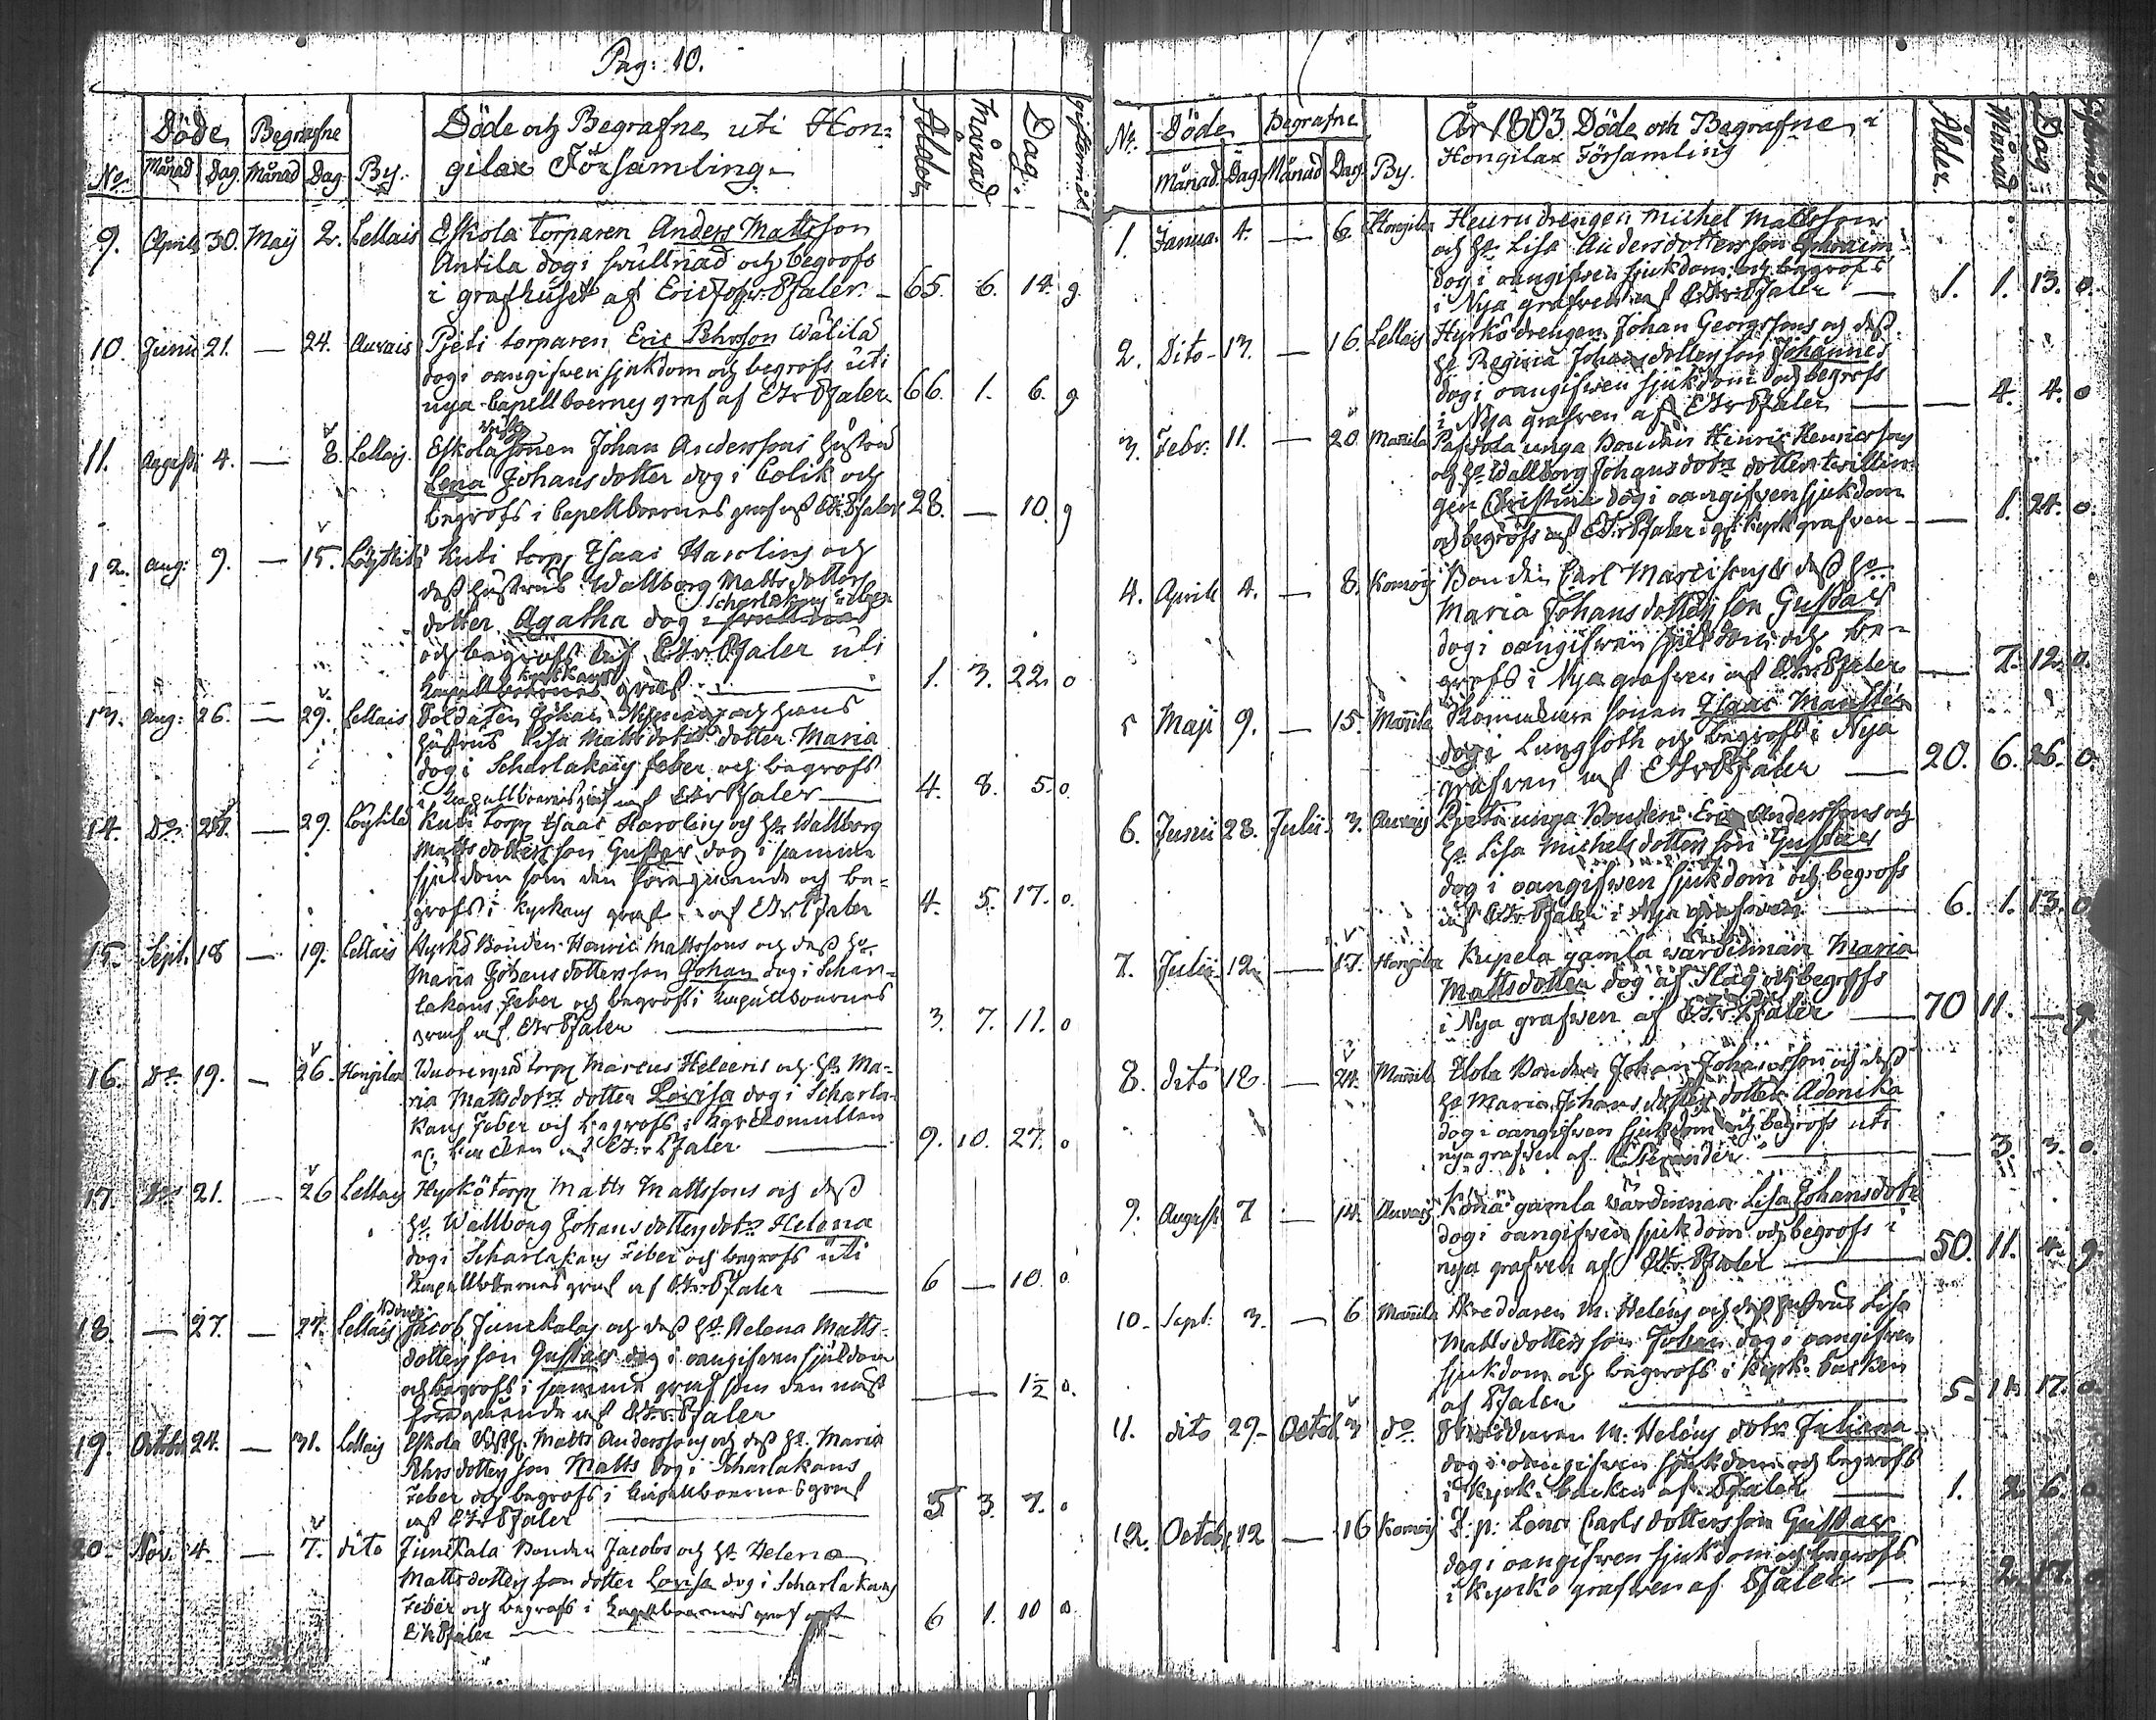 Pag: 10.
Döde Begrafne Döde och Begrafne uti Hon-
No. Månad Dag. Månad Dag. By. gilax Församling. Ålder Månad Dag.
9. Aprils 30. Maÿ 2. Lellais Eskola torparen Anders Mattsson
Antila dog i swullnad och begrofs
i grafhuset af Eric Pfaler. 65. 6. 14. g.
10. Junii 21. — 24. Auvais Pjeti torparen Eric Pehrsson Wälilä
dog i oangifven sjukdom och begrofs uti
nya Capellboernes graf af E:Hr Pfaler. 66. 1. 6. g
11. Augusti 4. — 8. Lellais. Eskola sonen Johan Anderssons hustru
Lena Johansdotter dog i Colik och
begrofs i Capellboernes graf af E:Hr Pfaler 28. — 10. g
12. Aug: 9. — 15. Kuti torp Isaac Harolins och
dess hustrus Wallborg Mattsdotters
Scharlakans feber
dotter Agatha dog i
och begrofs af E:Hr Pfaler uti
kyrkans
graf 1. 3. 22. o
13. Aug: 26. — 29. Lellais Soldaten Johan och hans
hustrus Lisa Mattsdotrs dotter Maria
dog i Scharlakans feber och begrofs
i Capellboernes graf af E:Hr Pfaler — 4. 8. 5. o.
14. Do — 29. Kuti torp Isaac Harolins och H: Wallborg
Mattsdotters son Gustav dog i samma
sjukdom som den föregående och be-
grofs i kyrkans graf af E:Hr Pfaler 4. 5. 17. o.
15. Sept. 18 — 19. Lellais Hyrkö Bonden Henric Mattssons och dess H:
Maria Johansdotters son Johan dog i Schar-
lakans feber och begrofs i Capellboernes
graf af E:Hr Pfaler — 3. 7. 11. o
16. Do 19. — 26. Hongilax torp Marcus Heleens och H: Ma-
ria Mattsdotrs dotter Lovisa dog i Scharla-
kans feber och begrofs i
af E:Hr Pfaler — 9. 10. 27. o
17. Do 21. — 26 Lellais Hyrkö torp Matts Mattssons och dess
H: Wallborg Johansdotters dotr Helena
dog i Scharlakans Feber och begrofs uti
Capellboernes graf af E:Hr Pfaler — 6 — 10. o
Bond:
18. — 27. — 27. Lellais Jacob Junikalas och dess H: Helena Matts-
dotters son Gustav dog i oangifven sjukdom
och begrofs i samma graf som den näst — — 1½ o.
föregående af E:Hr Pfaler
19. Octobr 24. — 31. Lellais Eskola Matts Anderssons och dess H: Maria
Pehrsdotters son Matts dog i Scharlakans
Feber och begrofs i Capellboernes graf
af E:Hr Pfaler — 5 3. 7. o
20. Nov. 4. — 7. dito Junikala Bonden Jacobs och H: Helena
Mattsdotters dotter Lovisa dog i Scharlakans
Feber och begrofs i Capellboernes graf
E:Hr Pfaler — 6 1. 10 o
No. Döde Begrafne År 1803. Döde och Begrafne i
Månad. Dag. Månad Dag. By. Hongilax Församling Ålder. Månad Dag
1. Janua. 4. — 6. Hongilax Heuru drengen Michel Mattssons
och H: Lisa Andersdotters son Ephraim
dog i oangifven sjukdom och begrofs
i Nya grafven af E:Hr Pfaler — 1. 1. 13. o.
2. Dito 13. — 16. Lellais Hyrkö drengen Johan Georgssons och dess
H: Regina Johansdotters son Johannes
dog i oangifven sjukdom och begrofs
i Nya grafven af E:Hr Pfaler — — 4. 4. o
3. Febr: 11. — 20. Mannila unga Bonden Hinric Henricssons
och H: Wallborg Johansdotrs dotter twillin-
gen Christina dog i oangifven sjukdom
och begrofs af E:Hr Pfaler i kyrk grafven — 1. 24. o.
4. Aprils 4. — 8. Komois Bonden Carl Marcissons & dess H:
Maria Johansdotters son Gustav
dog i oangifven sjukdom och be-
grofs i Nya grafven af E:Hr Pfaler — 7. 12. o.
5 Maji 9. — 15. Mannila sonen Isaac
dog i Lungsoth och begrofs i Nya
grafven af E:Hr Pfaler — 20. 6. 26. o.
6. Junii 28. Julii 3. Auvais Pjeti unga Bonden Eric Anderssons och
H: Lisa Michelsdotters son Gustav
dog i oangifven sjukdom och begrofs
af E:Hr Pfaler i Nya grafven — 6. 1. 13. o
7. Julii 12. — 17. Hongilax Kupela gamla wärdinnan Maria
Mattsdotter dog af Slag och begrofs
i Nya grafven af E:Hr Pfaler — 70 11. — g
8. dito 18. — 24. Mannila Ilola Bonden Johan Johanssons och dess
H: Maria Johansdotters dotter
dog i oangifven sjukdom och begrofs uti
nya grafven af — — 3. 3. o.
9. August 7 — 14. Auvais gamla wärdinnan Lisa Johansdotr
dog i oangifven sjukdom och begrofs i
nya grafven af E:Hr Pfaler — 50. 11. 4. g.
10. Sept. 3. — 6 Mannila Skreddaren M. Heleens och dess hustrus Lisa
Mattsdotters son Johan dog i oangifven
sjukdom och begrofs i kyrk. backen
af Pfaler — 5. 11. 17. o
11. dito 29. Octob. 3 do Skreddaren M: Heleens dotr Juliana
dog i oangifven sjukdom och begrofs
i kyrk. backen af Pfaler — 1. 2. 6. o
12. Octobr 12 — 16 Komois Lena Carlsdotters son Gustav
dog i oangifven sjukdom och begrofs
i kyrko grafven af Pfaler — — 2. 17. o